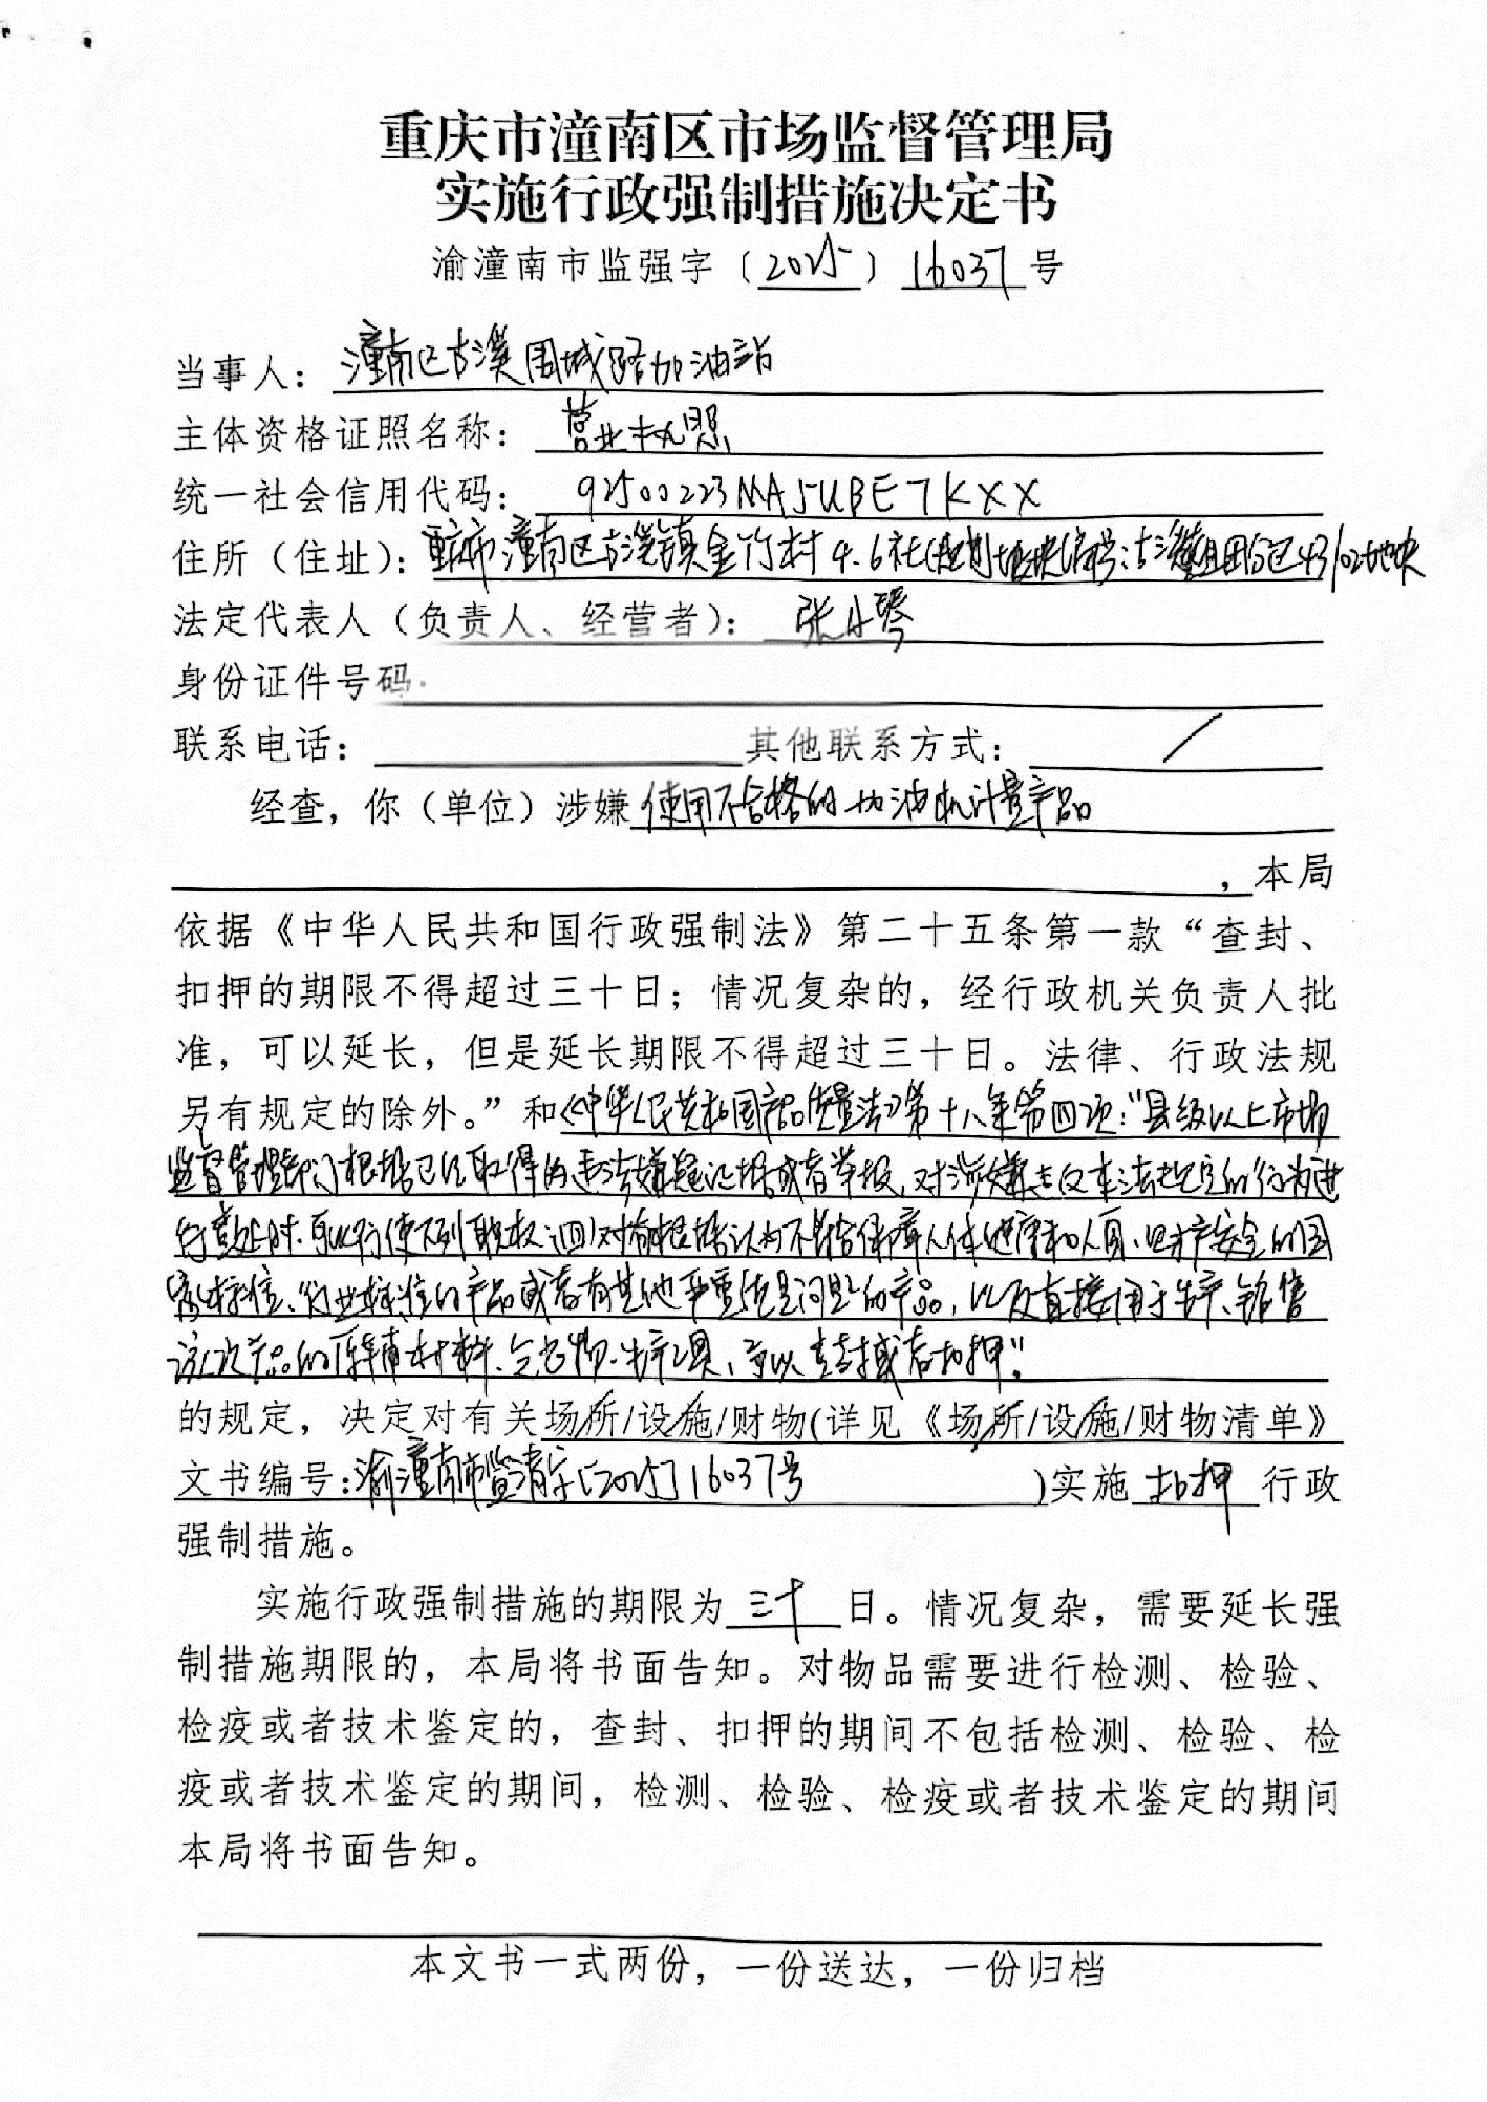 重庆市潼南区市场监督管理局
实施行政强制措施决定书
渝潼南市监强字〔2025〕16037号
当事人：潼南区古溪围城路加油站
主体资格证照名称：营业执照
统一社会信用代码：92500223MA5UBE7KXX
住所（住址）：重庆市潼南区古溪镇金竹村4.6社(规划地块编号:古溪组团分区43/02地块
法定代表人（负责人、经营者）：张小琴
身份证件号码
联系电话： 其他联系方式：/
经查，你（单位）涉嫌使用不合格的加油机计量产品
，本局
依据《中华人民共和国行政强制法》第二十五条第一款“查封、
扣押的期限不得超过三十日；情况复杂的，经行政机关负责人批
准，可以延长，但是延长期限不得超过三十日。法律、行政法规
另有规定的除外。”和《中华人民共和国产品质量法》第十八条第四项:“县级以上市场
监督管理部门根据已经取得的违法嫌疑证据或者举报,对涉嫌违反本法规定的行为进
行查处时,可以行使下列职权:(四)对有根据认为不符合保障人体健康和人身、财产安全的国
家标准、行业标准的产品或者有其他严重质量问题的产品,以及直接用于生产、销售
该项产品的原辅材料、包装物、生产工具,予以查封或者扣押。”
的规定，决定对有关场所/设施/财物(详见《场所/设施/财物清单》
文书编号:渝潼南市监清字[2025]16037号 )实施扣押行政
强制措施。
实施行政强制措施的期限为三十日。情况复杂，需要延长强
制措施期限的，本局将书面告知。对物品需要进行检测、检验、
检疫或者技术鉴定的，查封、扣押的期间不包括检测、检验、检
疫或者技术鉴定的期间，检测、检验、检疫或者技术鉴定的期间
本局将书面告知。
本文书一式两份，一份送达，一份归档